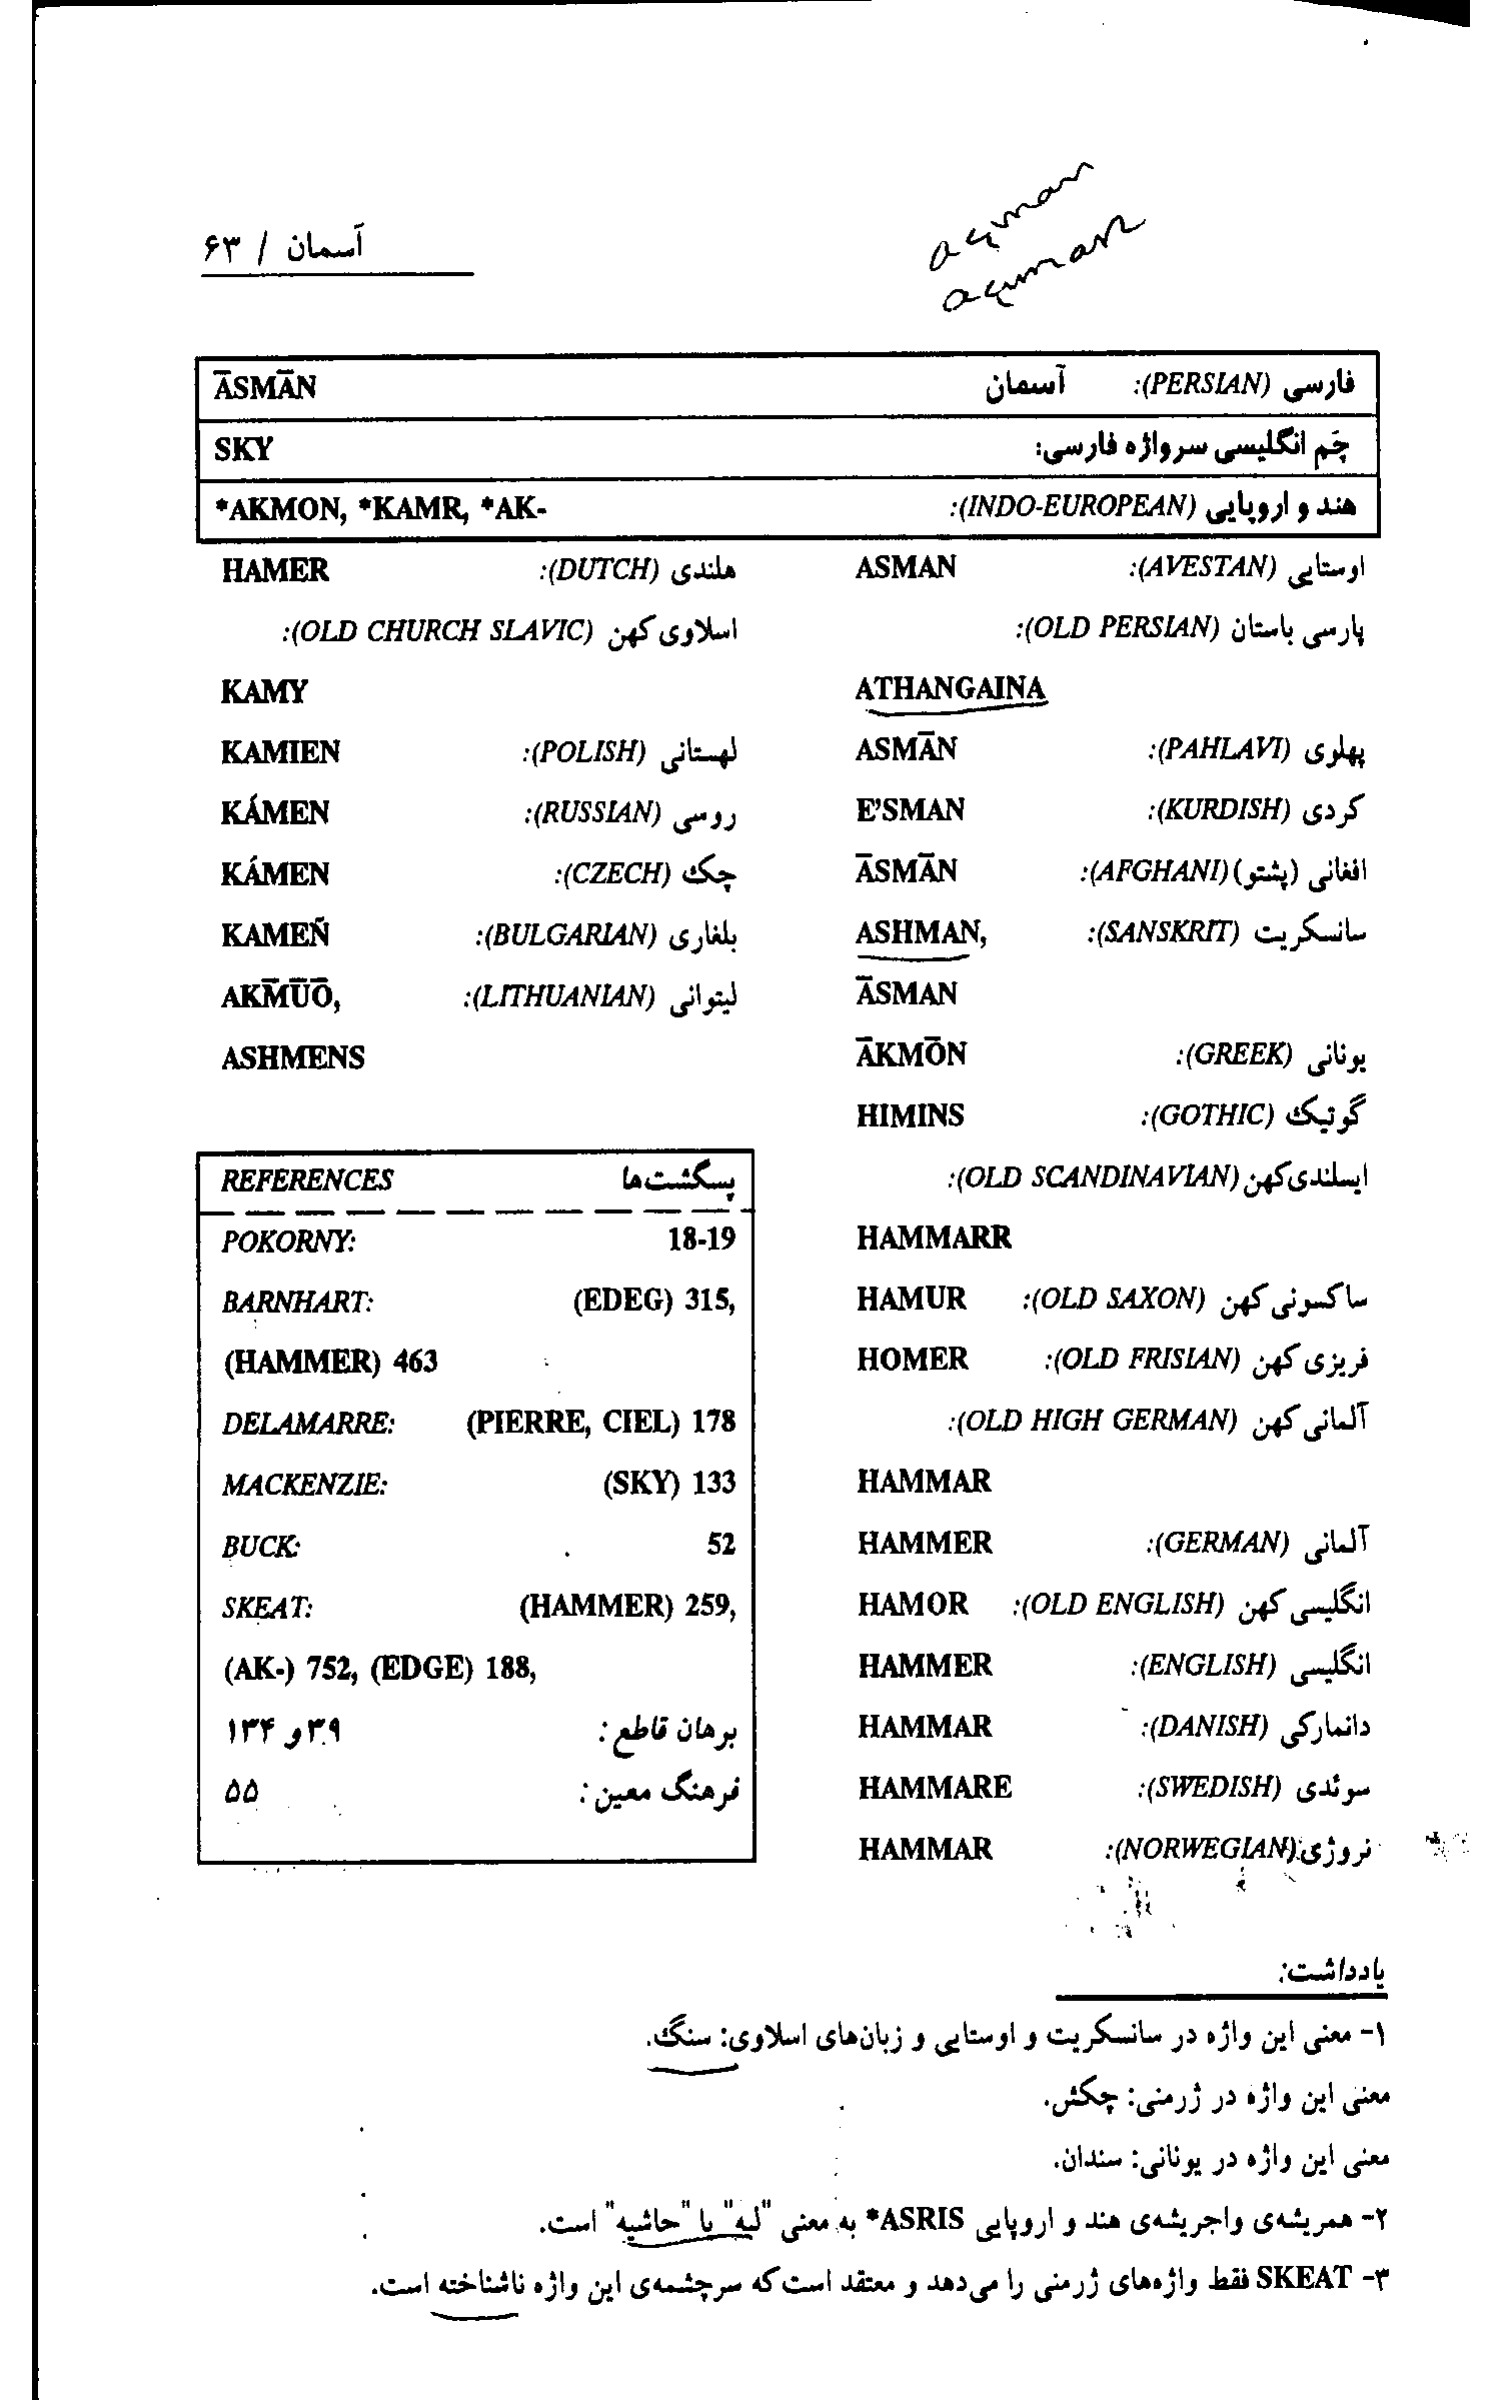 آسمان / ۶۳
açman
açman
فارسی (PERSIAN): آسمان ĀSMĀN
چَم انگلیسی سرواژه فارسی: SKY
هند و اروپایی (INDO-EUROPEAN): *AKMON, *KAMR, *AK-
اوستایی (AVESTAN): ASMAN
پارسی باستان (OLD PERSIAN):
ATHANGAINA
پهلوی (PAHLAVI): ASMĀN
کردی (KURDISH): E'SMAN
افغانی (پشتو) (AFGHANI): ĀSMĀN
سانسکریت (SANSKRIT): ASHMAN,
ĀSMAN
یونانی (GREEK): ĀKMŌN
گوتیک (GOTHIC): HIMINS
ایسلندی کهن (OLD SCANDINAVIAN):
HAMMARR
ساکسونی کهن (OLD SAXON): HAMUR
فریزی کهن (OLD FRISIAN): HOMER
آلمانی کهن (OLD HIGH GERMAN):
HAMMAR
آلمانی (GERMAN): HAMMER
انگلیسی کهن (OLD ENGLISH): HAMOR
انگلیسی (ENGLISH): HAMMER
دانمارکی (DANISH): HAMMAR
سوئدی (SWEDISH): HAMMARE
نروژی (NORWEGIAN): HAMMAR
هلندی (DUTCH): HAMER
اسلاوی کهن (OLD CHURCH SLAVIC):
KAMY
لهستانی (POLISH): KAMIEN
روسی (RUSSIAN): KÁMEN
چک (CZECH): KÁMEN
بلغاری (BULGARIAN): KAMEÑ
لیتوانی (LITHUANIAN): AKM̄ŪŌ,
ASHMENS
REFERENCES پسگشت‌ها
POKORNY: 18-19
BARNHART: (EDEG) 315,
(HAMMER) 463
DELAMARRE: (PIERRE, CIEL) 178
MACKENZIE: (SKY) 133
BUCK: 52
SKEAT: (HAMMER) 259,
(AK-) 752, (EDGE) 188,
برهان قاطع : ۳۹ و ۱۳۴
فرهنگ معین : ۵۵
یادداشت:
۱- معنی این واژه در سانسکریت و اوستایی و زبان‌های اسلاوی: سنگ.
معنی این واژه در ژرمنی: چکش.
معنی این واژه در یونانی: سندان.
۲- همریشه‌ی واجریشه‌ی هند و اروپایی ASRIS* به معنی "لبه" یا "حاشیه" است.
۳- SKEAT فقط واژه‌های ژرمنی را می‌دهد و معتقد است که سرچشمه‌ی این واژه ناشناخته است.